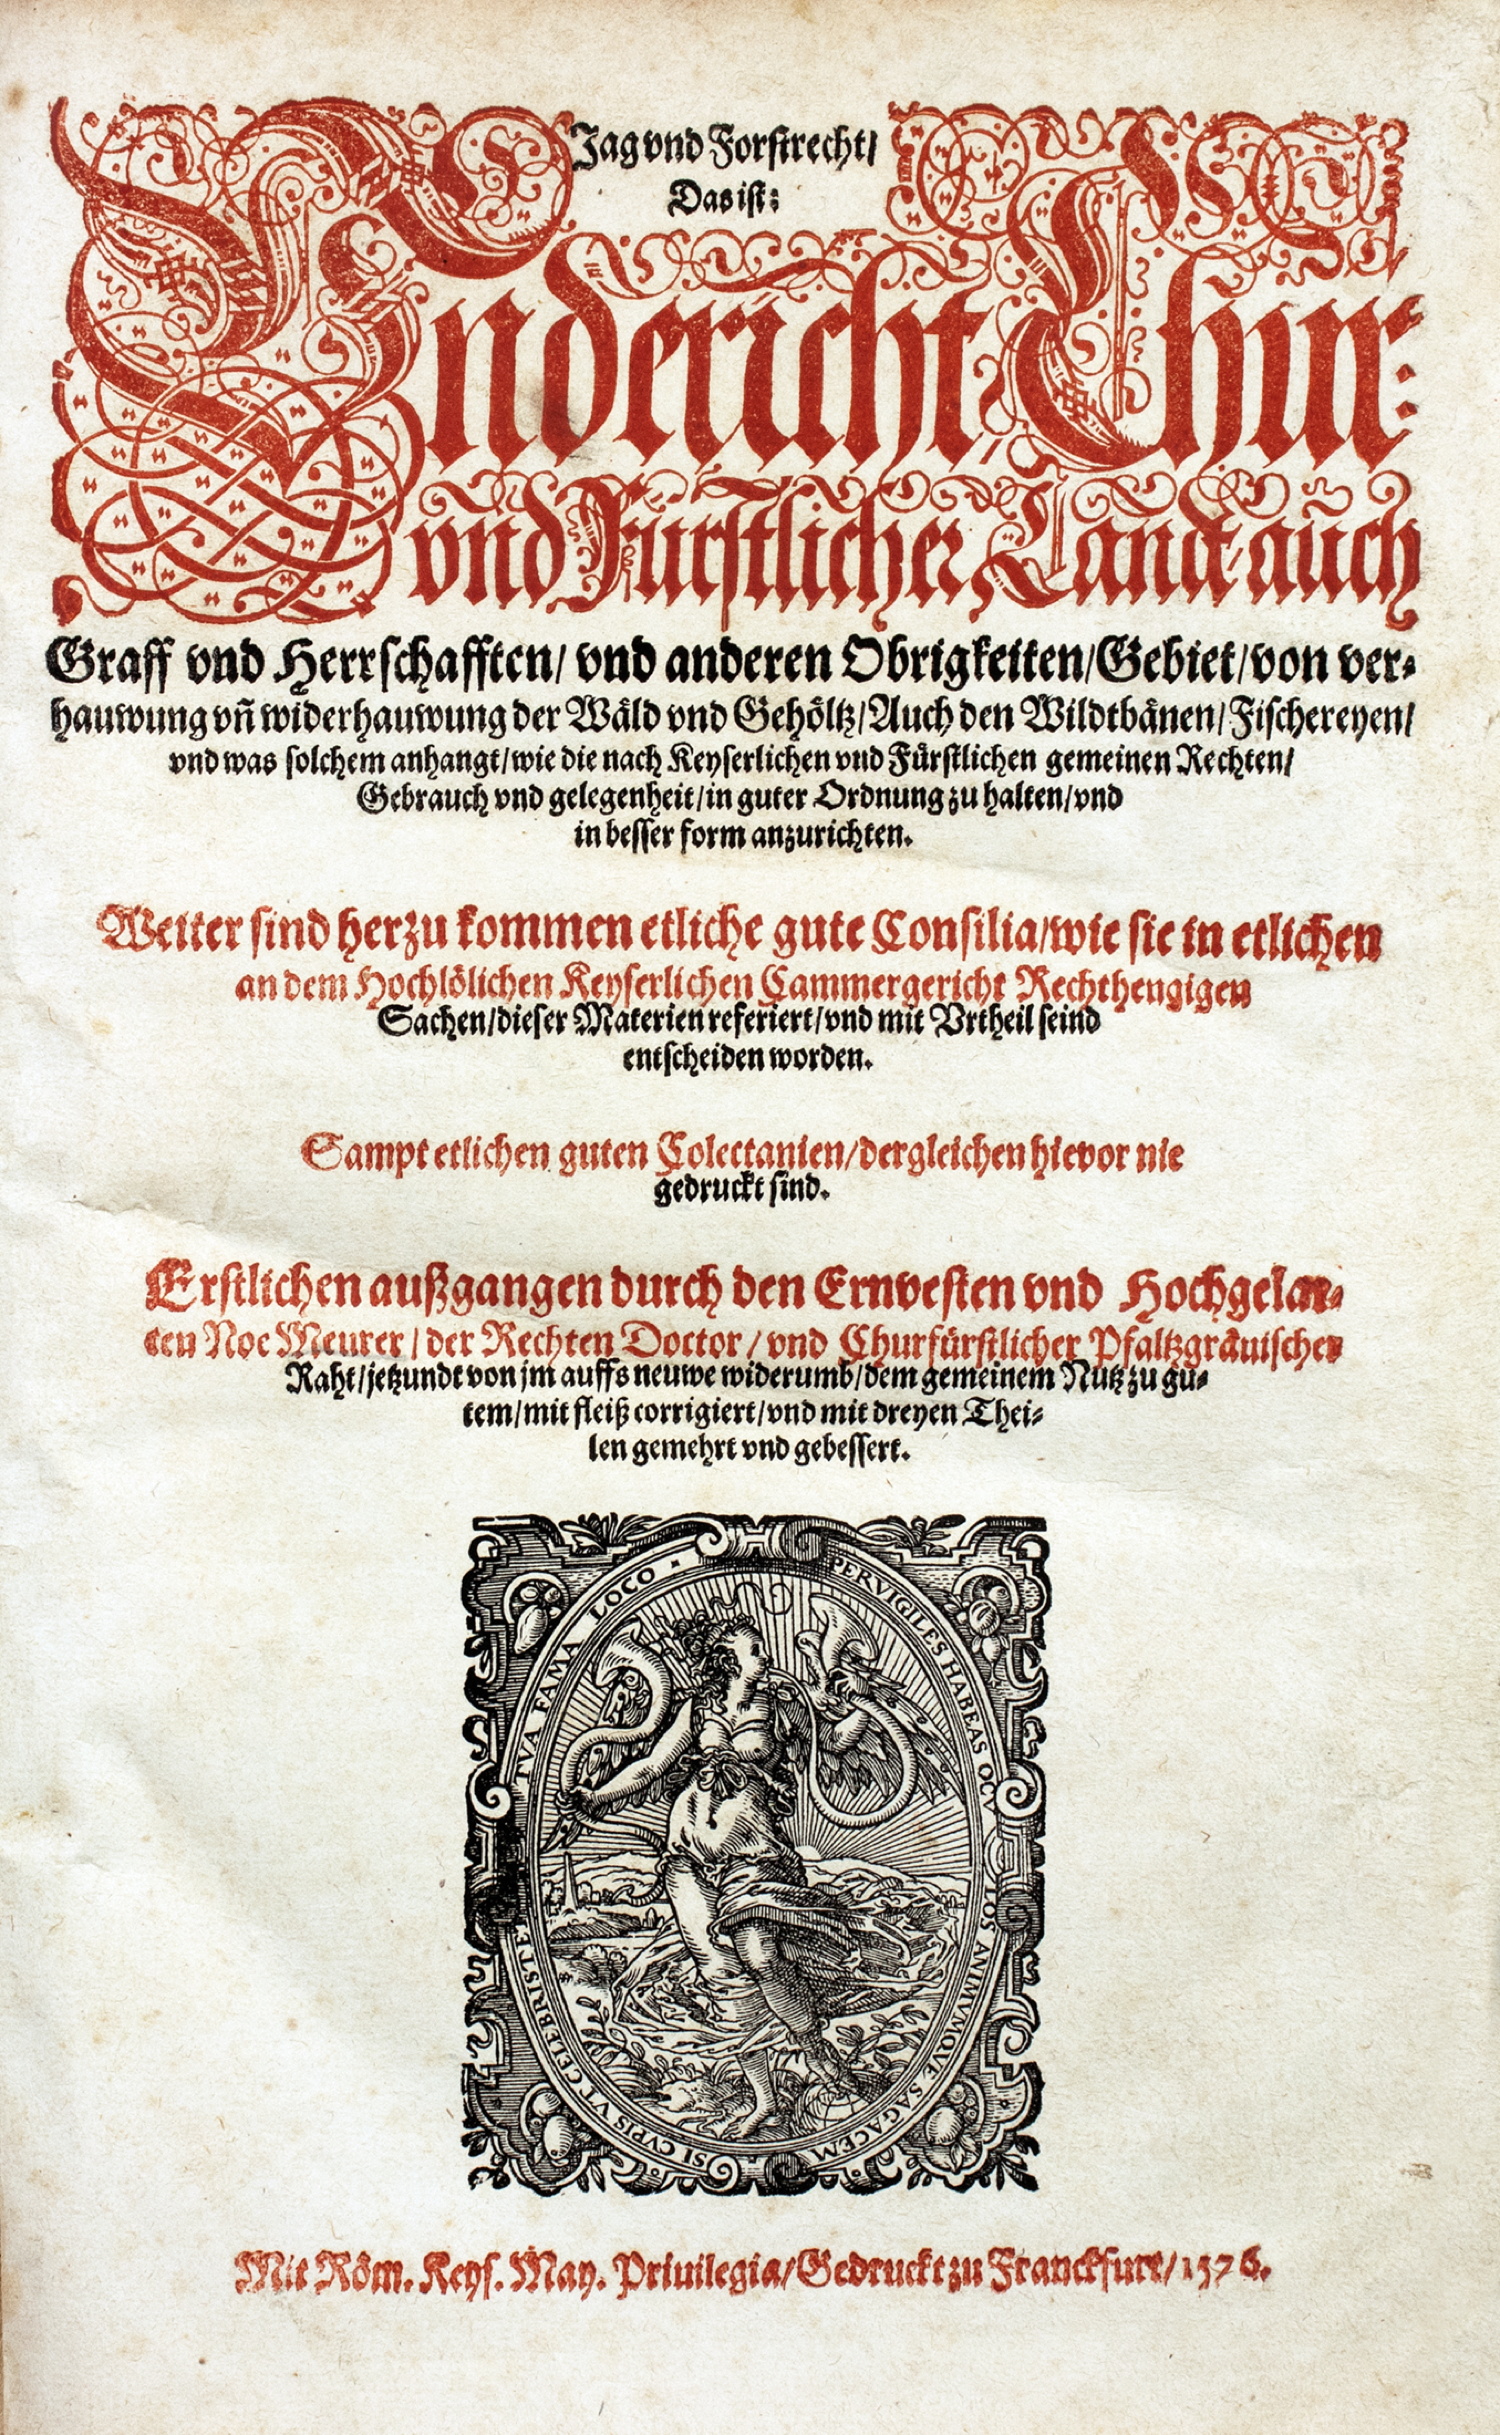 Jag vnd Forstrecht/
Das ist:
Vndericht Chur:
vnd Fürstlicher Landt/ auch
Graff vnd Herrschafften/ vnd anderen Obrigkeiten/ Gebiet/ von ver-
hauwung vñ widerhauwung der Wäld vnd Gehöltz/ Auch den Wildtbänen/ Fischereyen/
vnd was solchem anhangt/ wie die nach Keyserlichen vnd Fürstlichen gemeinen Rechten/
Gebrauch vnd gelegenheit/ in guter Ordnung zu halten/ vnd
in besser form anzurichten.
Weiter sind herzu kommen etliche gute Consilia/ wie sie in etlichen
an dem Hochlölichen Keyserlichen Cammergericht Rechthengigen
Sachen/ dieser Materien referiert/ vnd mit Vrtheil seind
entscheiden worden.
Sampt etlichen guten Colectanien/ dergleichen hievor nie
gedruckt sind.
Erstlichen außgangen durch den Ernvesten vnd Hochgelar-
ten Noe Meurer/ der Rechten Doctor/ vnd Churfürstlicher Pfaltzgräuischer
Raht/ jetzundt von jm auffs neuwe widerumb/ dem gemeinem Nutz zu gu-
tem/ mit fleiß corrigiert/ vnd mit dreyen Thei-
len gemehrt vnd gebessert.
SI CVPIS VT CELEBRI STET TVA FAMA LOCO.
PERVIGILES HABEAS OCVLOS ANIMVMQVE SAGACEM
Mit Röm. Keys. May. Priuilegia/ Gedruckt zu Franckfurt/ 1576.